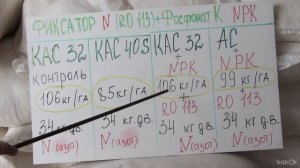 ФИКСАТОР N (RO 113) + Фосфонат К NPK
КАС 32 КАС 40S КАС 32 АС
контроль + NPK + NPK
106 кг/га 85 кг/га 106 кг/га 99 кг/га
+ RO 113 + RO 113
34 кг д.в. 34 кг д.в. 34 кг д.в. 34 кг д.в.
N (азот) N (азот) N (азот) N (азот)
InShOt